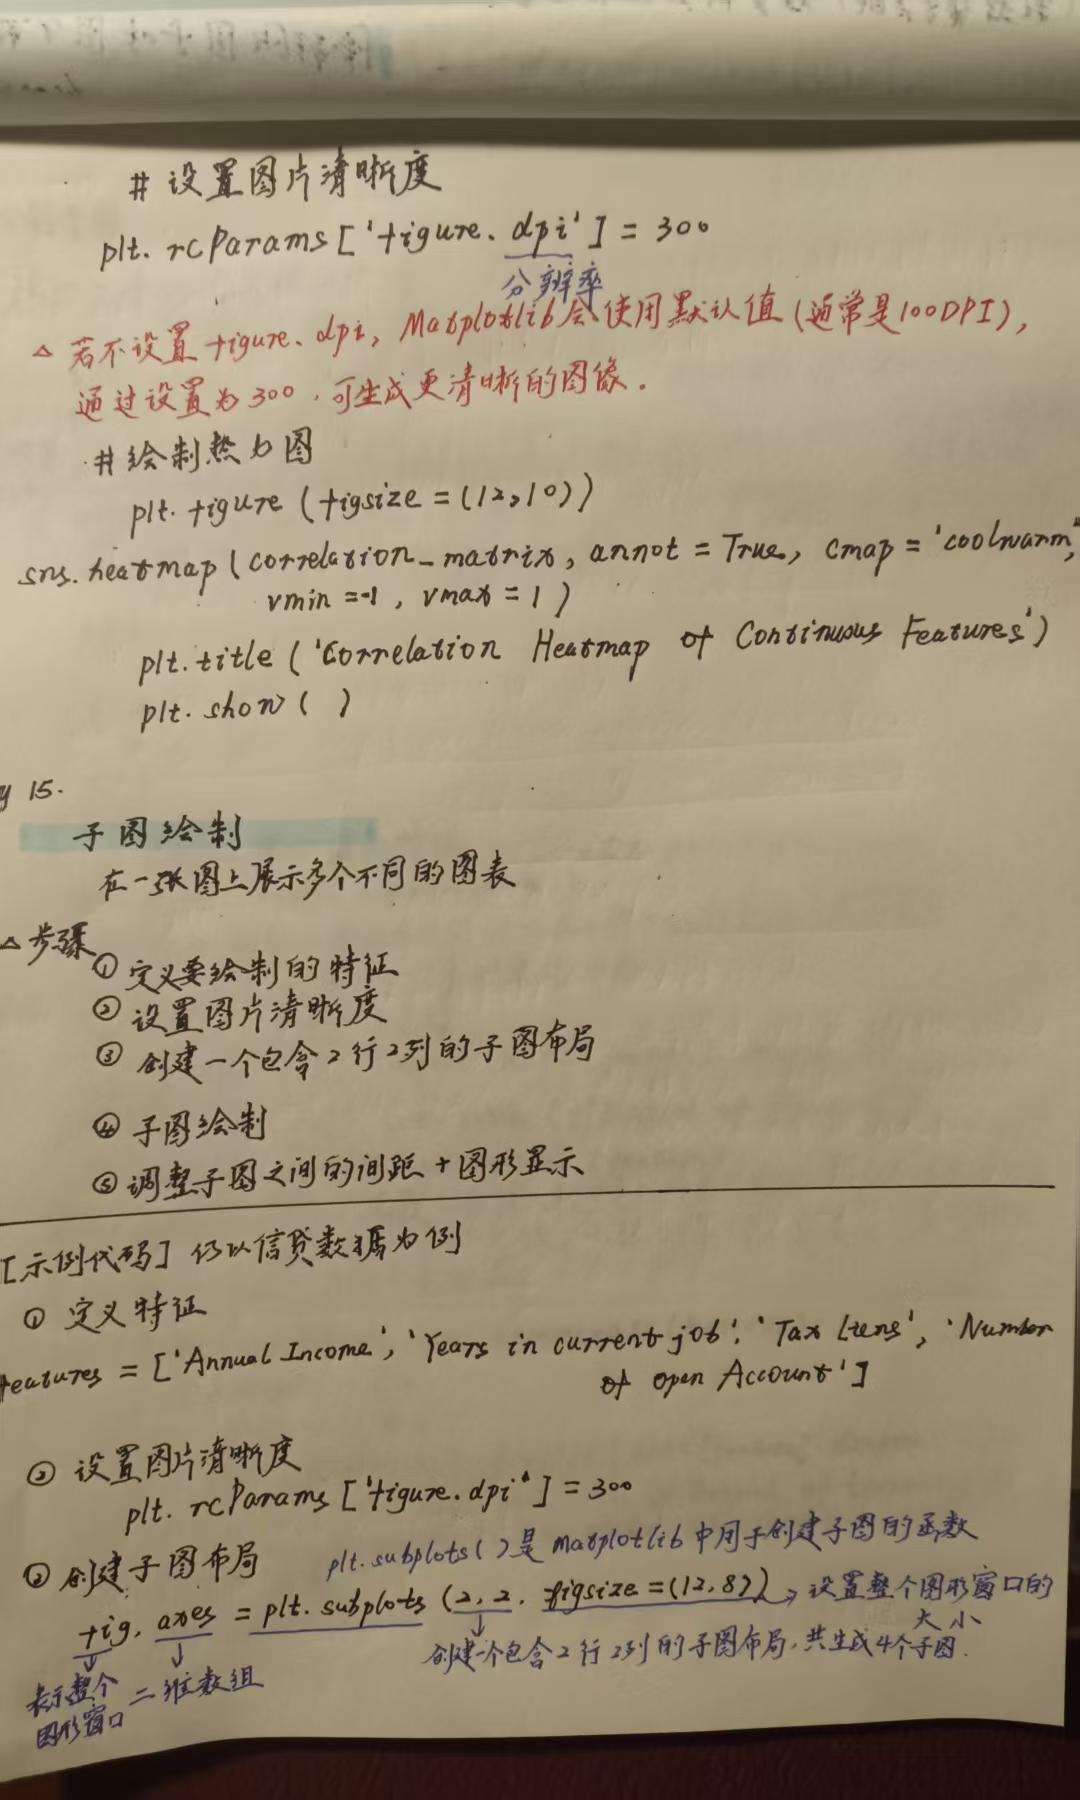 # 设置图片清晰度
plt. rcParams['figure. dpi'] = 300
分辨率
△ 若不设置 figure. dpi, Matplotlib会使用默认值(通常是100DPI),
通过设置为300, 可生成更清晰的图像.
# 绘制热力图
plt. figure (figsize = (12,10))
sns. heatmap (correlation_matrix, annot = True, cmap = 'coolwarm',
vmin = -1, vmax = 1)
plt. title ('Correlation Heatmap of Continuous Features')
plt. show ( )
y 15.
子图绘制
在一张图上展示多个不同的图表
△ 步骤
① 定义要绘制的特征
② 设置图片清晰度
③ 创建一个包含2行2列的子图布局
④ 子图绘制
⑤ 调整子图之间的间距 + 图形显示
[示例代码] 仍以信贷数据为例
① 定义特征
features = ['Annual Income', 'Years in current job', 'Tax Liens', 'Number
of open Account']
② 设置图片清晰度
plt. rcParams ['figure. dpi'] = 300
③ 创建子图布局 plt. subplots( )是 Matplotlib中用于创建子图的函数
fig, axes = plt. subplots (2, 2, figsize = (12, 8)) → 设置整个图形窗口的
大小
创建一个包含2行2列的子图布局, 共生成4个子图.
表示整个
图形窗口
二维数组